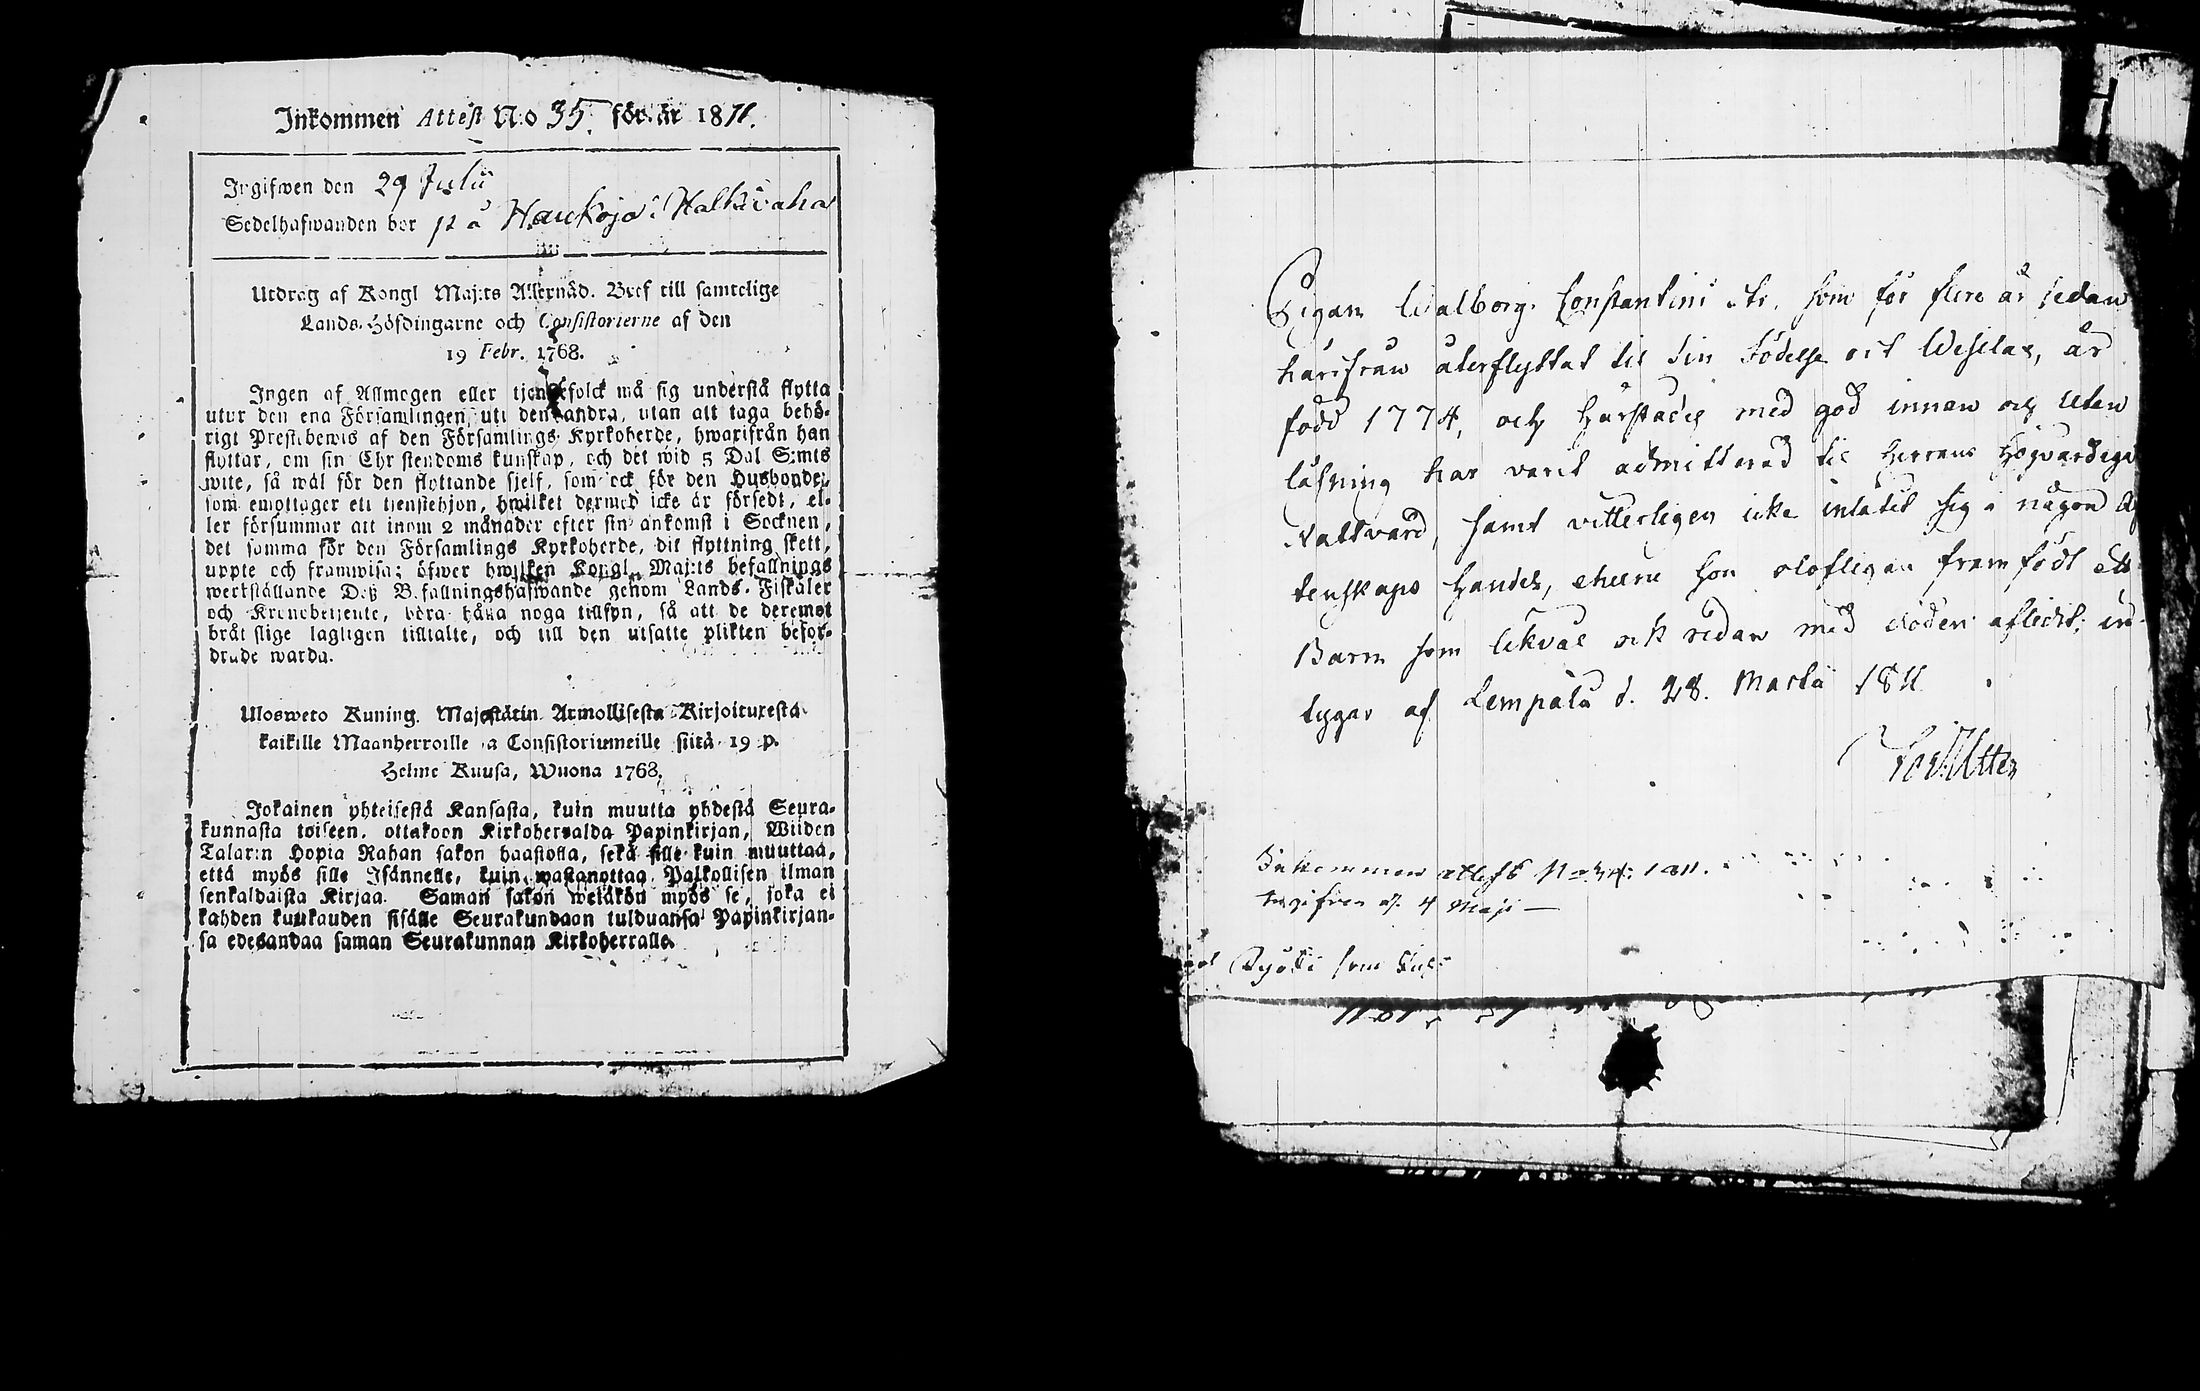 Inkommen Attest N:o 35. för år 1811.
Ingifwen den 29 Julii
Sedelhafwanden bor på Haukoja i Halkivaha
Utdrag af Kongl Maj:ts Allernåd. Bref till samtelige
Lands-Höfdingarne och Consistorierne af den
19 Febr. 1768.
Ingen af Allmogen eller tjenstefolck må sig understå flytta
utur den ena Församlingen uti den andra, utan att taga behö-
rigt Prestebewis af den Församlings Kyrkoherde, hwarifrån han
flyttar, om sin Christendoms kunskap, och det wid 5 Dal S:mts
wite, så wäl för den flyttande sjelf, som ock för den Husbonde,
som emottager ett tjenstehjon, hwilket dermed icke är försedt, el-
ler försummar att inom 2 månader efter sin ankomst i Socknen,
det samma för den Församlings Kyrkoherde, dit flyttning skett,
uppte och framwisa; öfwer hwilken Kongl. Maj:ts befallnings
werkställande Deß Befallningshafwande genom Lands-Fiskäler
och Kronobetjente, böra hålla noga tillsyn, så att de deremot
bråtslige lagligen tilltalte, och till den utsatte plikten befor-
drade warda.
Ulosweto Kuning. Majestätin Armollisesta Kirjoituxesta
kaikille Maanherroille ja Consistoriumeille siitä 19 p.
Helme Kuusa, Wuona 1768.
Jokainen yhteisestä Kansasta, kuin muutta yhdestä Seura-
kunnasta toiseen, ottakoon Kirkoherralda Papinkirjan, Wiiden
Talarin Hopia Rahan sakon haastolla, sekä sille kuin muuttaa,
että myös sille Isännelle, kuin wastanottaa Palkollisen ilman
senkaldaista Kirjaa. Saman sakon wetäkön myös se, joka ei
kahden kuukauden sisälle Seurakundaan tulduansa Papinkirjan-
sa edesandaa saman Seurakunnan Kirkoherralle.
Pigan Walborg Constantini dtr. som för flere år sedan
härifrån återflyttat til sin födelse ort Wesilax, är
född 1774, och härstädes med god innan och utan
läsning har varit admitterad til Herrans Högvärdiga
Nattvard, samt vitterligen icke inlåtit sig i någon äg
tenskaps handel, ehuru hon olofligen framfödt ett
Barn som likväl ock redan med döden aflidit; in-
tygar af Lempälä d. 28. Martii 1811
Inkommen attest No 1811.
Ingifven d. 4 Maji